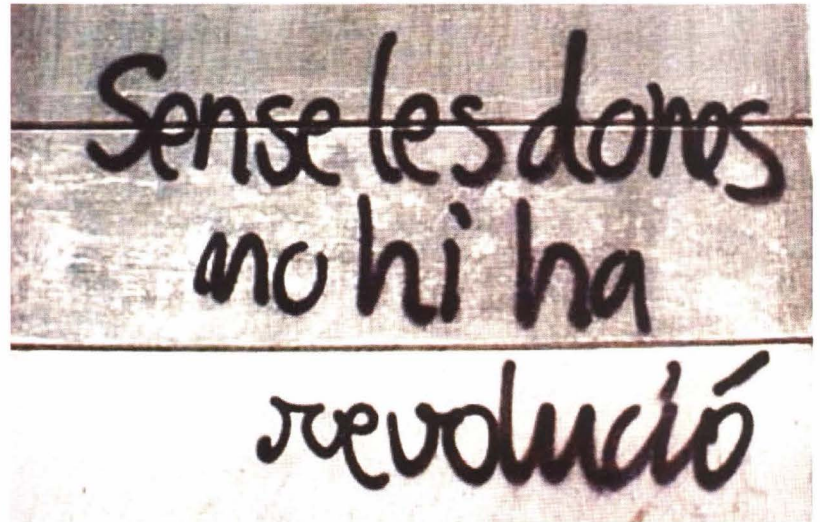 Sense les dones
no hi ha
revolució